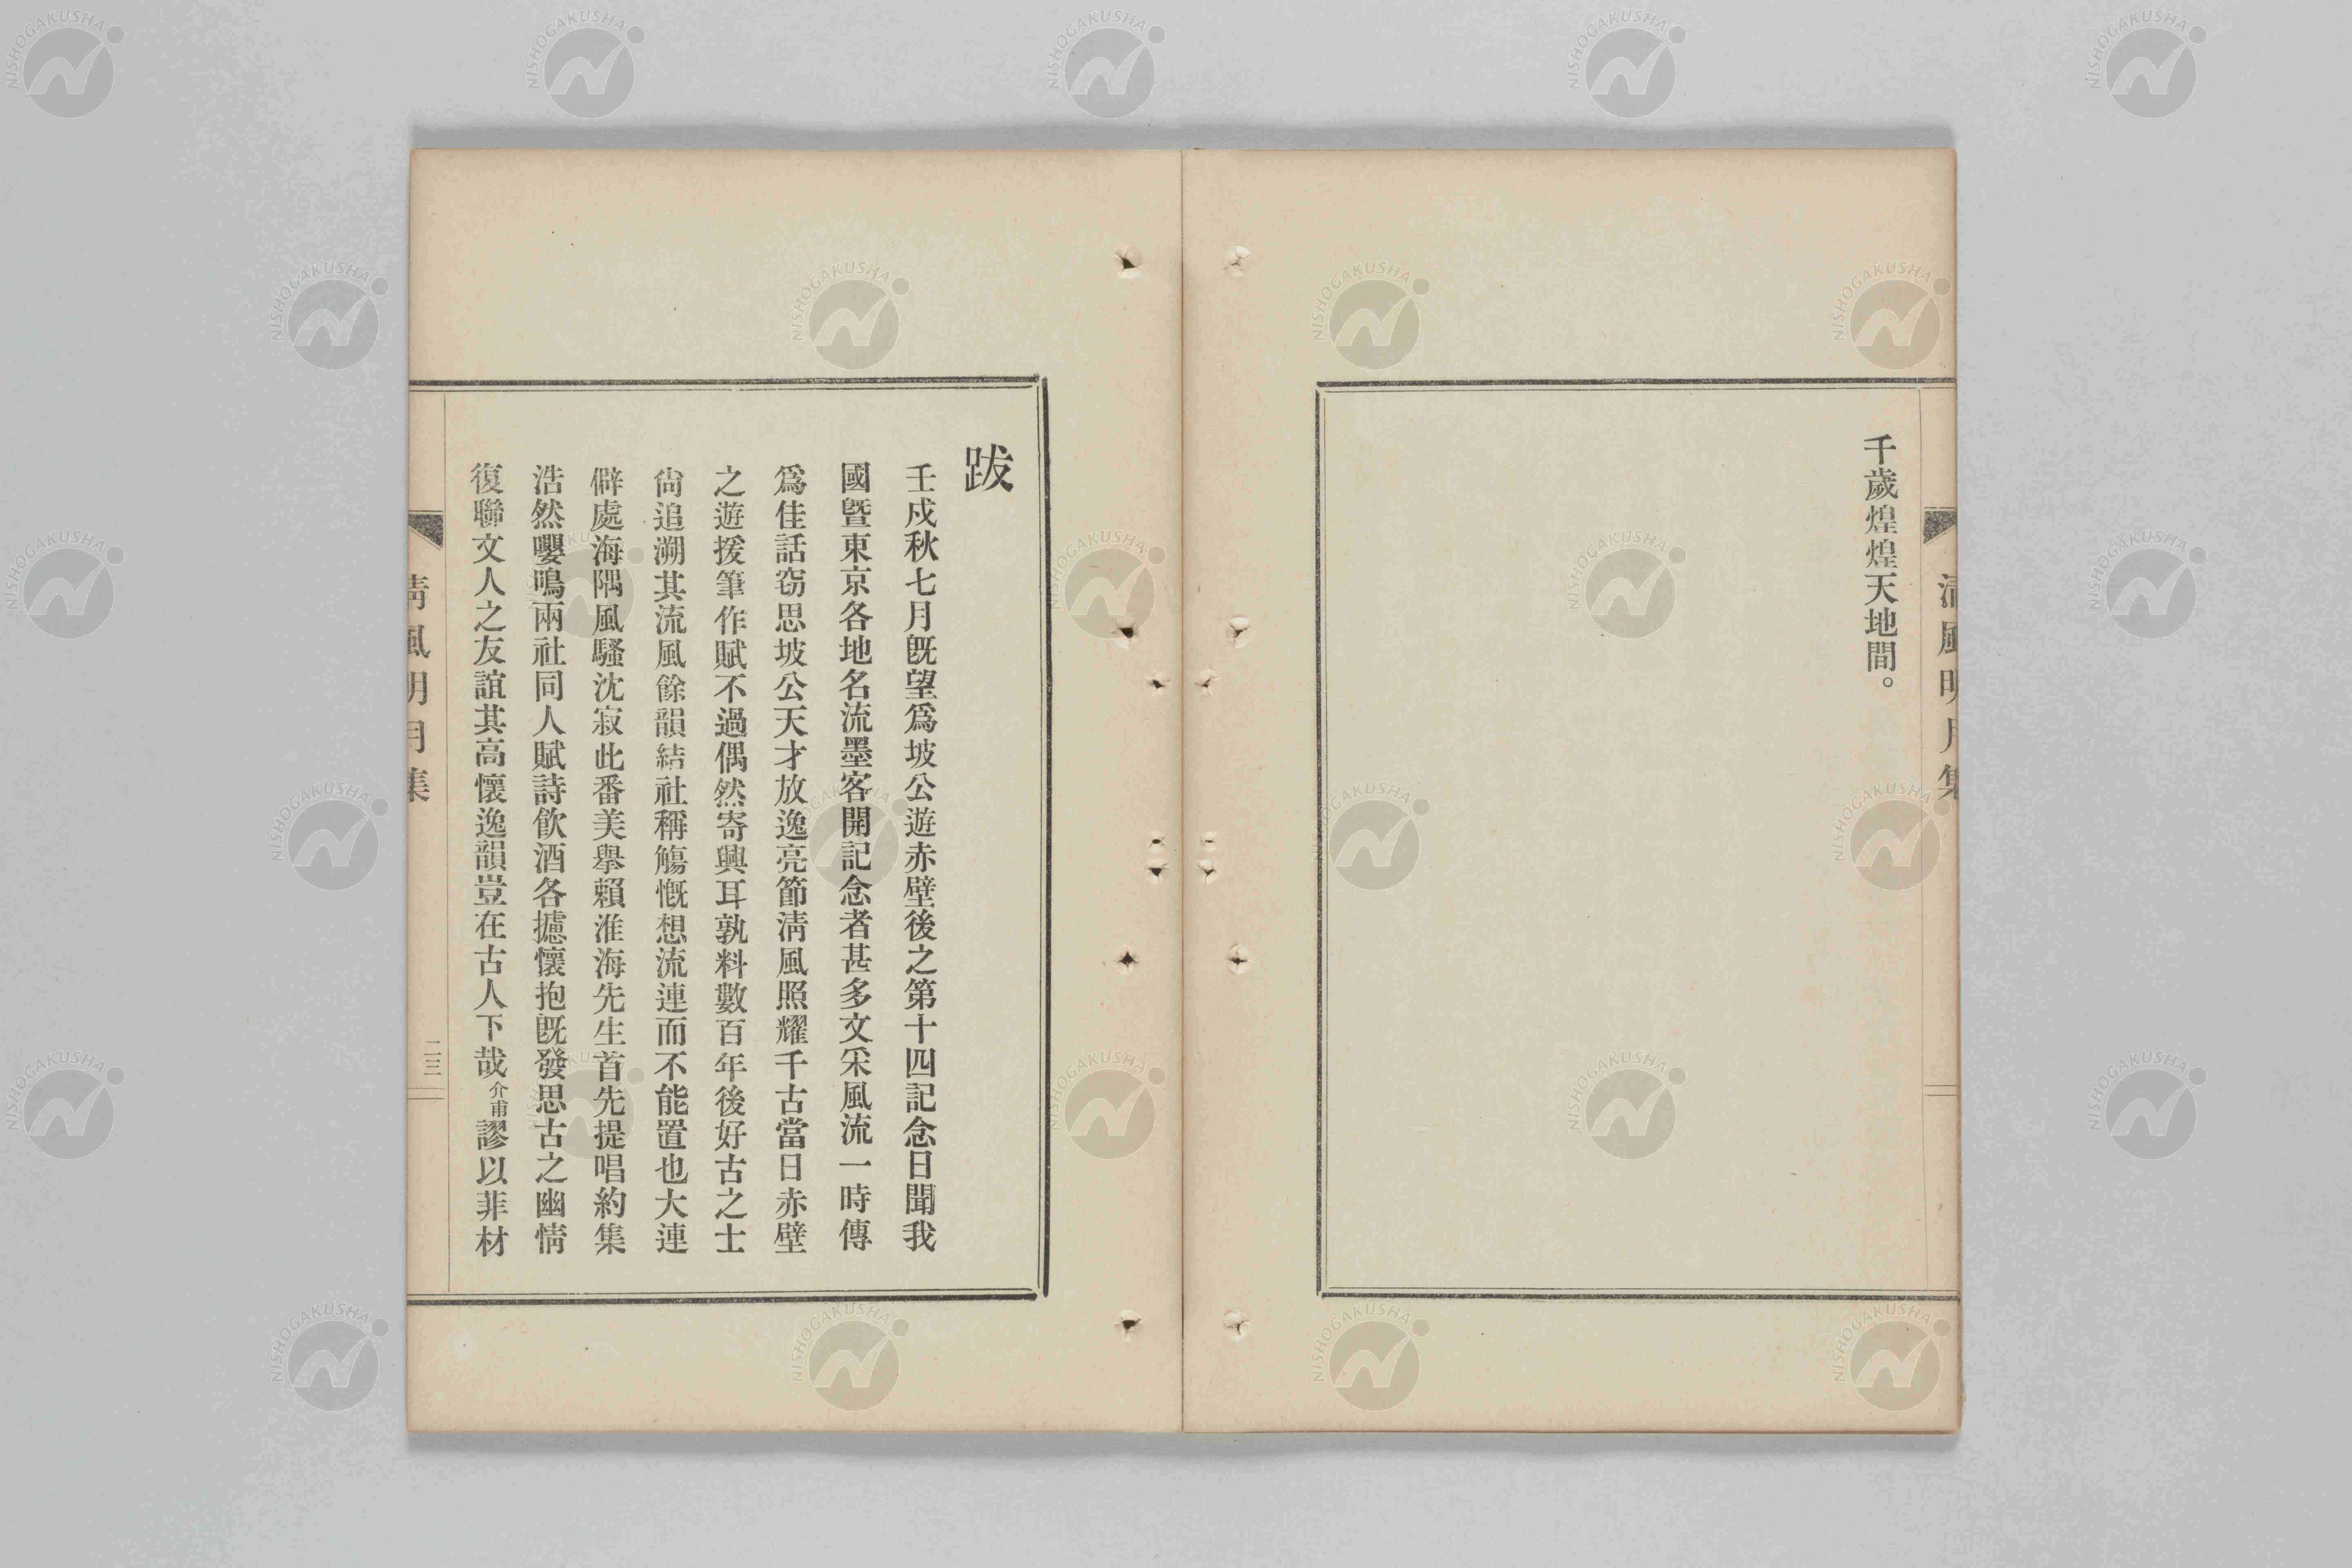 千歲煌煌天地間。
清風明月集
跋
壬戍秋七月旣望爲坡公遊赤壁後之第十四記念日聞我
國曁東京各地名流墨客開記念者甚多文采風流一時傳
爲佳話窃思坡公天才放逸亮節淸風照耀千古當日赤壁
之遊援筆作賦不過偶然寄興耳孰料數百年後好古之士
尙追溯其流風餘韻結社稱觴慨想流連而不能置也大連
僻處海隅風騷沈寂此番美擧賴淮海先生首先提唱約集
浩然嚶鳴兩社同人賦詩飮酒各攄懷抱旣發思古之幽情
復聯文人之友誼其高懷逸韻豈在古人下哉介甫謬以菲材
淸風明月集
二三
NISHOGAKUSHA